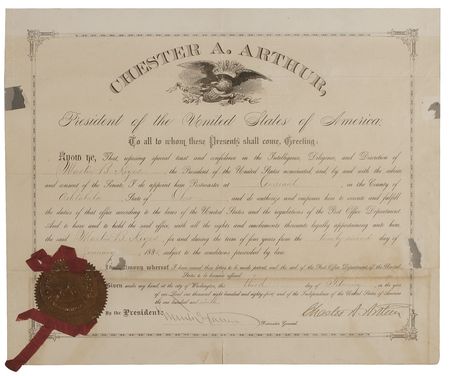 CHESTER A. ARTHUR,
President of the United States of America,
To all to whom these Presents shall come, Greeting:
Know ye, That reposing special trust and confidence in the Intelligence, Diligence, and Discretion of
the President of the United States nominated, and by and with the advice
and consent of the Senate did appoint him Postmaster at Conneaut, in the County of
Ashtabula State of Ohio and do authorize and empower him to execute and fulfill
the duties of that office according to the laws of the United States and the regulations of the Post Office Department
And to have and to hold the said office, with all the rights and emoluments thereunto legally appertaining unto him
the said for and during the term of four years from the day of
188 subject to the conditions prescribed by law.
In testimony whereof I have caused these letters to be made patent, and the seal of the Post Office Department of the United
States to be hereunto affixed
Given under my hand, at the city of Washington, the day of in the year
of our Lord one thousand eight hundred and eighty and of the Independence of the United States of America
the one hundred and
By the President: Chester A. Arthur
Postmaster General.